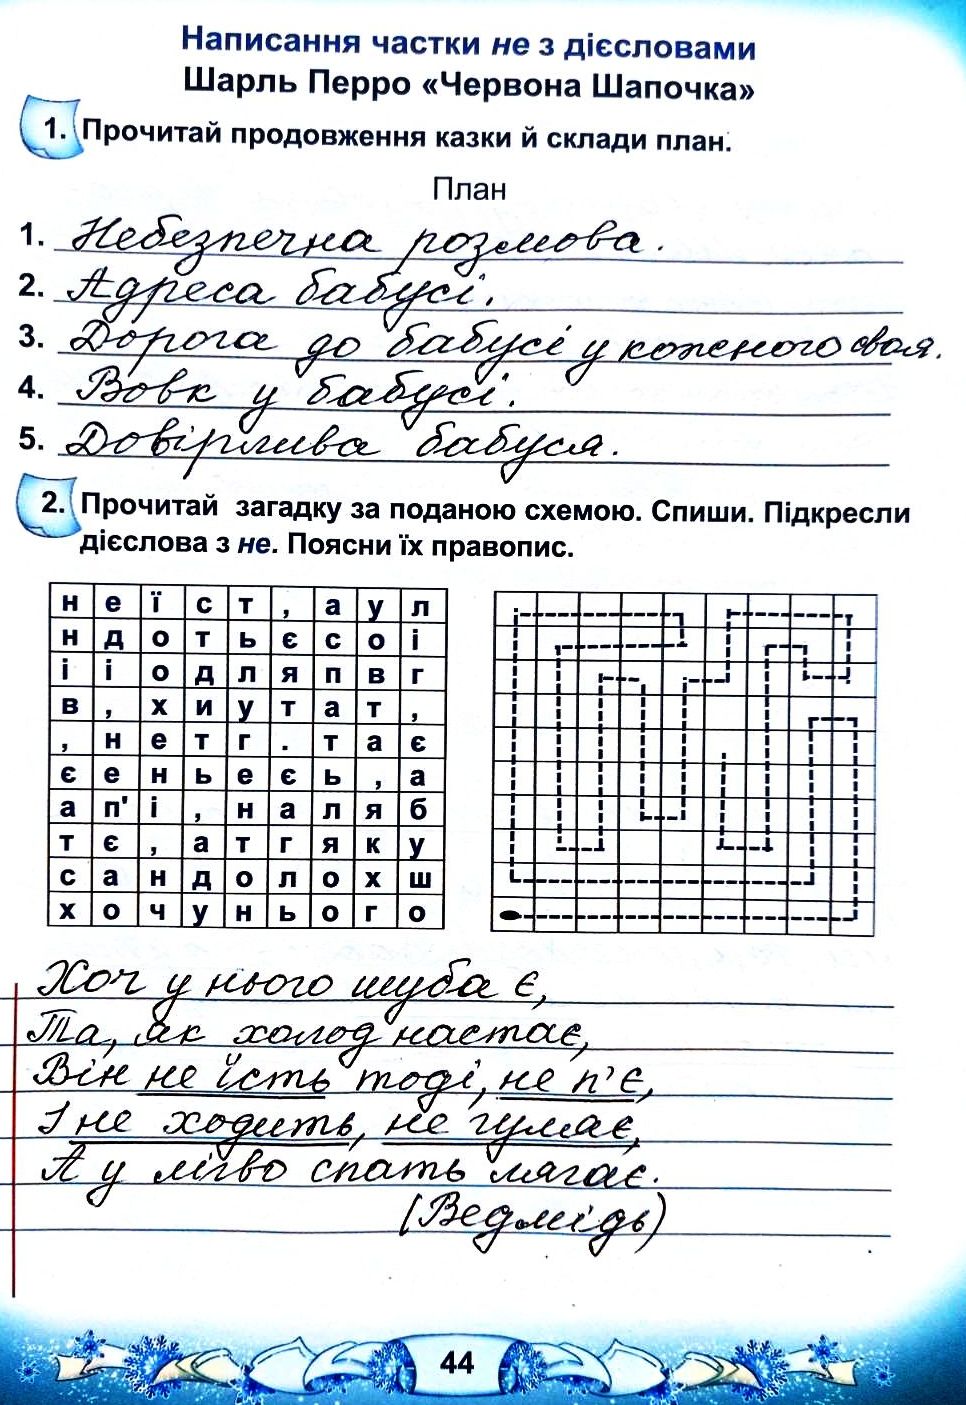 Написання частки не з дієсловами
Шарль Перро «Червона Шапочка»
1. Прочитай продовження казки й склади план.
План
1. Небезпечна розмова.
2. Адреса бабусі.
3. Дорога до бабусі у кожного своя.
4. Вовк у бабусі.
5. Довірлива бабуся.
2. Прочитай загадку за поданою схемою. Спиши. Підкресли
дієслова з не. Поясни їх правопис.
н е ї с т , а у л
н д о т ь є с о і
і і о д л я п в г
в , х и у т а т ,
, н е т г . т а є
є е н ь е є ь , а
а п' і , н а л я б
т є , а т г я к у
с а н д о л о х ш
х о ч у н ь о г о
Хоч у нього шуба є,
Та, як холод настає,
Він не їсть тоді, не п'є,
І не ходить, не гуляє,
А у лігво спать лягає.
(Ведмідь)
44